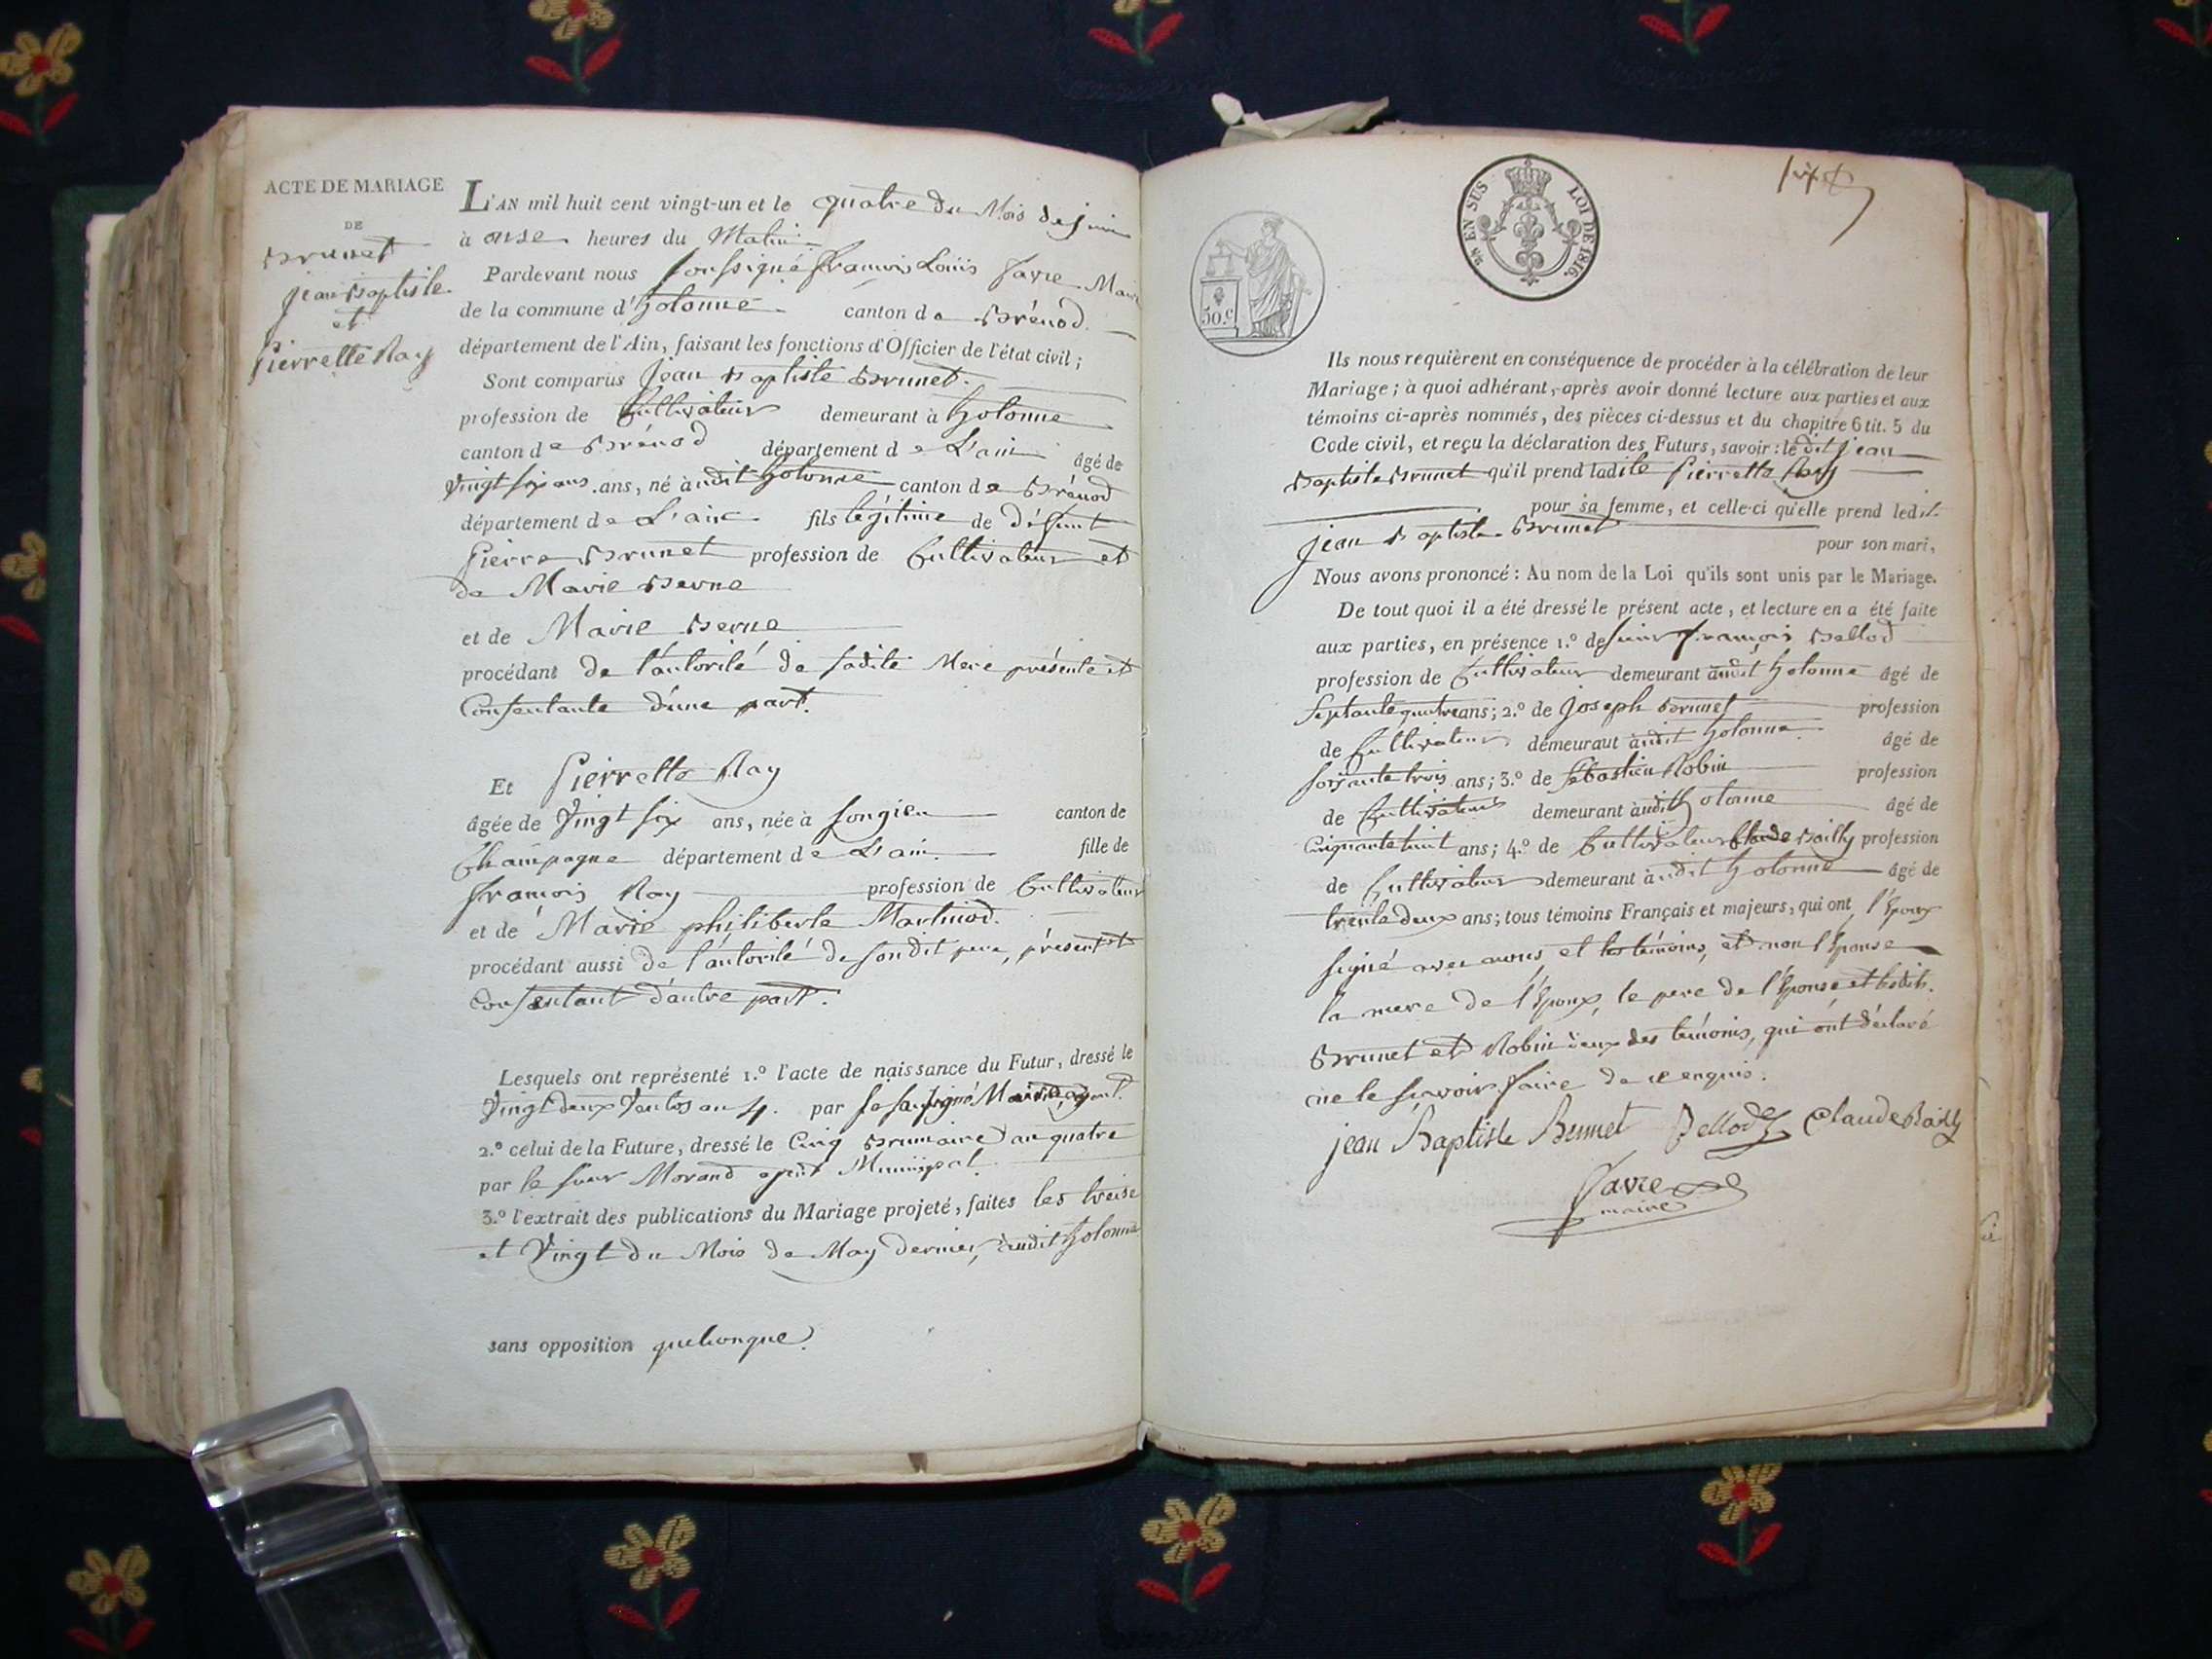 ACTE DE MARIAGE
DE
Brunet
jean Baptiste
et
Pierrette Ray
L'AN mil huit cent vingt-un et le quatre du Mois de juin
à onse heures du Matin
Pardevant nous soussigné françois Louis Favre Maire
de la commune d'hotonne canton de Brénod
département de l'Ain, faisant les fonctions d'Officier de l'état civil ;
Sont comparus Jean Baptiste Brunet.
profession de Cultivateur demeurant à hotonne
canton de Brénod département de L'ain âgé de
Vingt six ans. ans, né audit hotonne canton de Brénod
département de L'ain fils légitime de défunt
Pierre Brunet profession de Cultivateur et
de Marie Berne
et de Marie Berne
procédant de l'autorité de sadite Mere présente et
Consentante d'une part.
Et Pierrette Ray
âgée de Vingt six ans, née à songieu canton de
Champagne département de L'ain. fille de
françois Ray profession de Cultivateur
et de Marie philiberte Martinod.
procédant aussi de l'autorité de sondit pere, présent et
Consentant d'autre part.
Lesquels ont représenté 1.º l'acte de naissance du Futur, dressé le
Vingt deux Ventos an 4. par
2.º celui de la Future, dressé le Cinq Brumaire an quatre
par le sieur Morand agent Municipal
3.º l'extrait des publications du Mariage projeté, faites les treise
et Vingt du Mois de May dernier, audit hotonne
sans opposition quelconque.
EN SUS LOI DE 1816.
50.c
Ils nous requièrent en conséquence de procéder à la célébration de leur
Mariage ; à quoi adhérant, après avoir donné lecture aux parties et aux
témoins ci-après nommés, des pièces ci-dessus et du chapitre 6 tit. 5 du
Code civil, et reçu la déclaration des Futurs, savoir : le dit jean
Baptiste Brunet qu'il prend ladite Pierrette Ray
pour sa femme, et celle-ci qu'elle prend ledit
jean Baptiste Brunet
pour son mari,
Nous avons prononcé : Au nom de la Loi qu'ils sont unis par le Mariage.
De tout quoi il a été dressé le présent acte, et lecture en a été faite
aux parties, en présence 1.º de sieur françois Bellod
profession de Cultivateur demeurant audit hotonne âgé de
septante quatre ans ; 2.º de joseph Brunet profession
de Cultivateur demeurant audit hotonne âgé de
soixante trois ans ; 3.º de sébastien Robin profession
de Cultivateur demeurant audit hotonne âgé de
Cinquante huit ans ; 4.º de Cultivateur Claude Bailly profession
de Cultivateur demeurant audit hotonne âgé de
trente deux ans ; tous témoins Français et majeurs, qui ont l'Epoux
signé avec nous et les témoins, et non l'Epouse
la mere de l'Epoux, le pere de l'Epouse et lesdits.
Brunet et Robin deux des témoins, qui ont déclaré
ne le savoir faire de ce enquis.
jean Baptiste Brunet Bellod Claude Bailly
Favre
maire